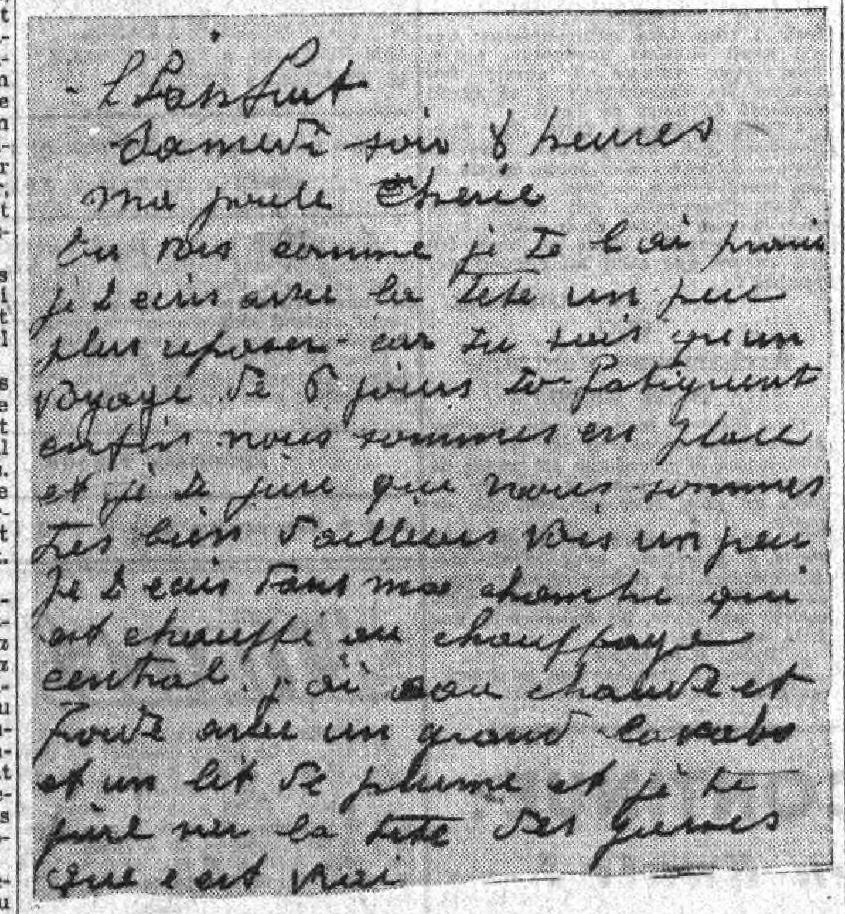 Samedi soir 8 heures
ma poule Cherie
tu vois comme je te l ai promis
je t ecris avec la tete un peu
plus reposer car tu sais qu un
voyage de 6 jours te fatiguent
enfin nous sommes en place
et je te jure que nous sommes
tres bien d ailleurs vois un peu
je t ecris dans ma chambre qui
est chauffé au chauffage
central. j ai eau chaude et
froide avec un grand lavabo
et un lit de plume et je te
jure sur la tete des
que c est vrai